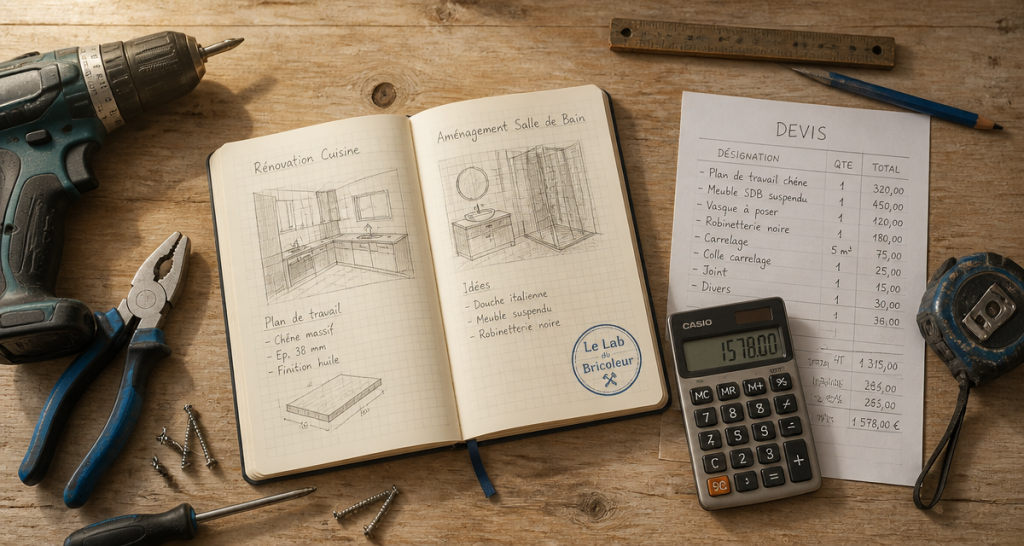 Rénovation Cuisine
Plan de travail
- Chêne massif
- Ep. 38 mm
- Finition huile
Aménagement Salle de Bain
Idées
- Douche italienne
- Meuble suspendu
- Robinetterie noire
Le Lab
du
Bricoleur
DEVIS
DÉSIGNATION QTE TOTAL
- Plan de travail chêne 1 320,00
- Meuble SDB suspendu 1 450,00
- Vasque à poser 1 120,00
- Robinetterie noire 1 180,00
- Carrelage 5 m² 75,00
- Colle carrelage 1 25,00
- Joint 1 15,00
- Divers 30,00
36,00
HT 1 315,00
265,00
1 578,00 €
CASIO
1578.00
MC MR M+ %
7 8 8
5 5
C 2 3 +